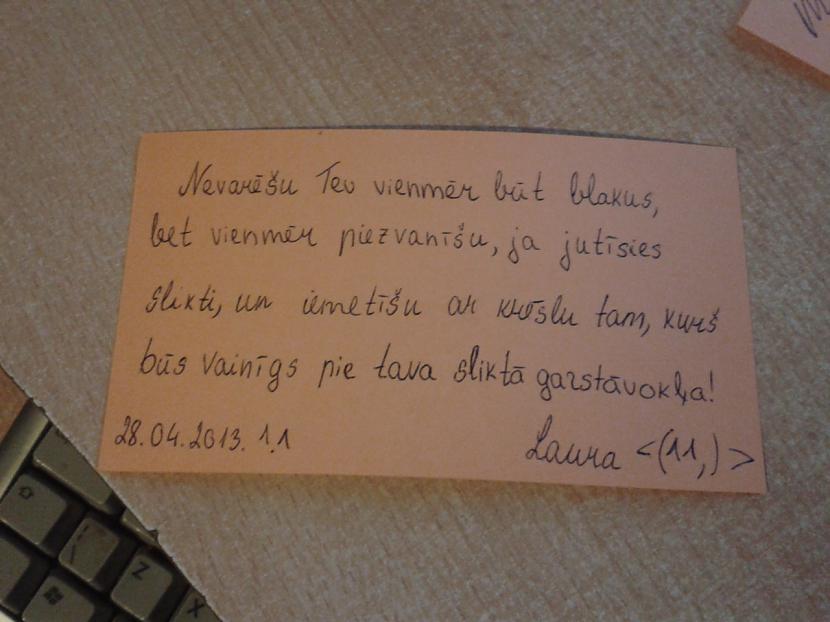 Nevarēšu Tev vienmēr būt blakus,
bet vienmēr piezvanīšu, ja jutīsies
slikti, un iemetīšu ar krēslu tam, kurš
būs vainīgs pie tava sliktā garstāvokļa!
28.04.2013. 1.1
Laura <(11,)>
Z
X